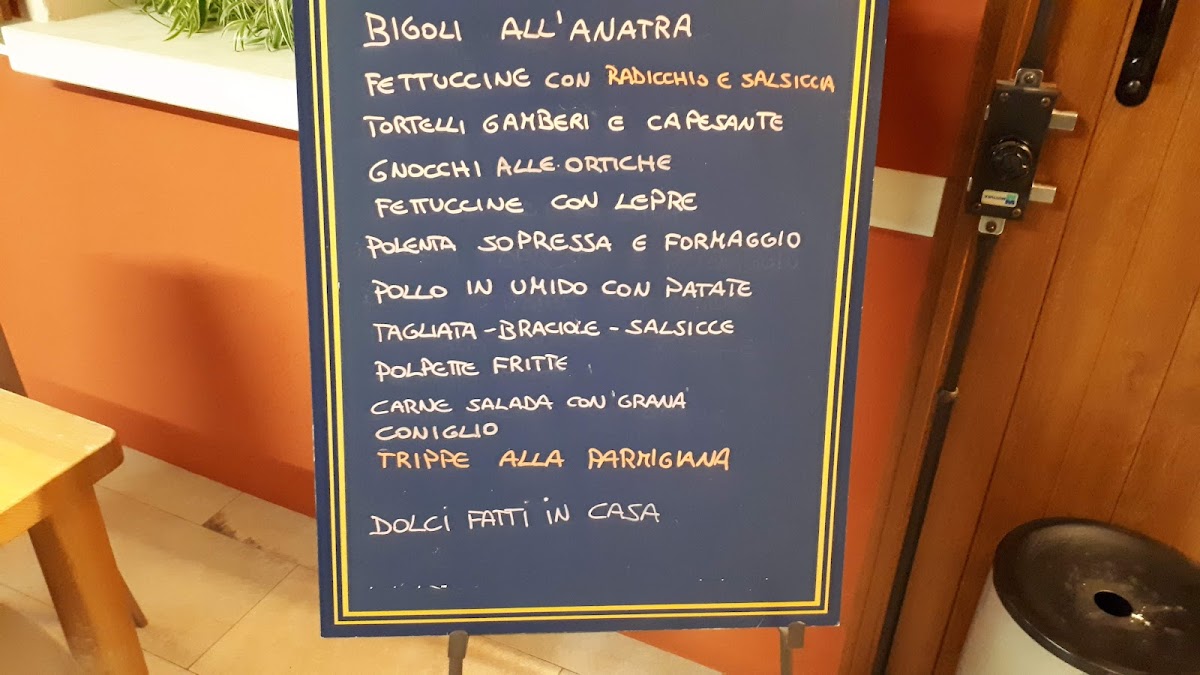 BIGOLI ALL'ANATRA
FETTUCCINE CON RADICCHIO E SALSICCIA
TORTELLI GAMBERI E CAPESANTE
GNOCCHI ALLE ORTICHE
FETTUCCINE CON LEPRE
POLENTA SOPRESSA E FORMAGGIO
POLLO IN UMIDO CON PATATE
TAGLIATA - BRACIOLE - SALSICCE
POLPETTE FRITTE
CARNE SALADA CON 'GRANA'
CONIGLIO
TRIPPE ALLA PARMIGIANA
DOLCI FATTI IN CASA